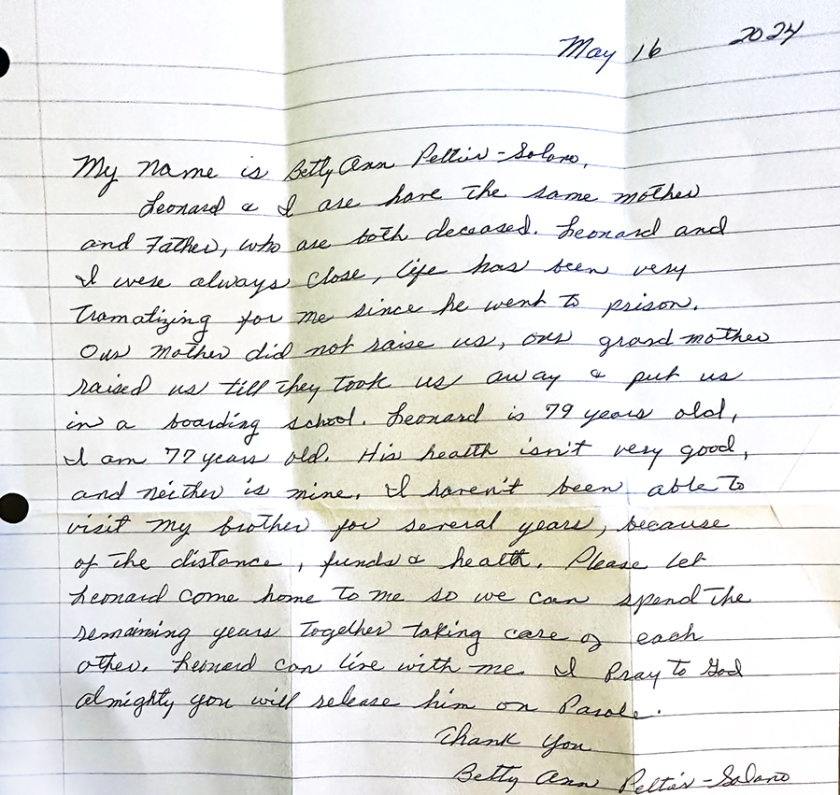 May 16 2024
My name is Betty Ann Peltier-Solano,
Leonard & I are have the same mother
and Father, who are both deceased. Leonard and
I were always close, life has been very
tramatizing for me since he went to prison.
Our mother did not raise us, our grand mother
raised us till they took us away & put us
in a boarding school. Leonard is 79 years old,
I am 77 years old. His health isn't very good,
and neither is mine. I haven't been able to
visit my brother for several years, because
of the distance, funds & health. Please let
Leonard come home to me so we can spend the
remaining years together taking care of each
other. Leonard can live with me. I Pray to God
almighty you will release him on Parole.
Thank You
Betty Ann Peltier-Solano